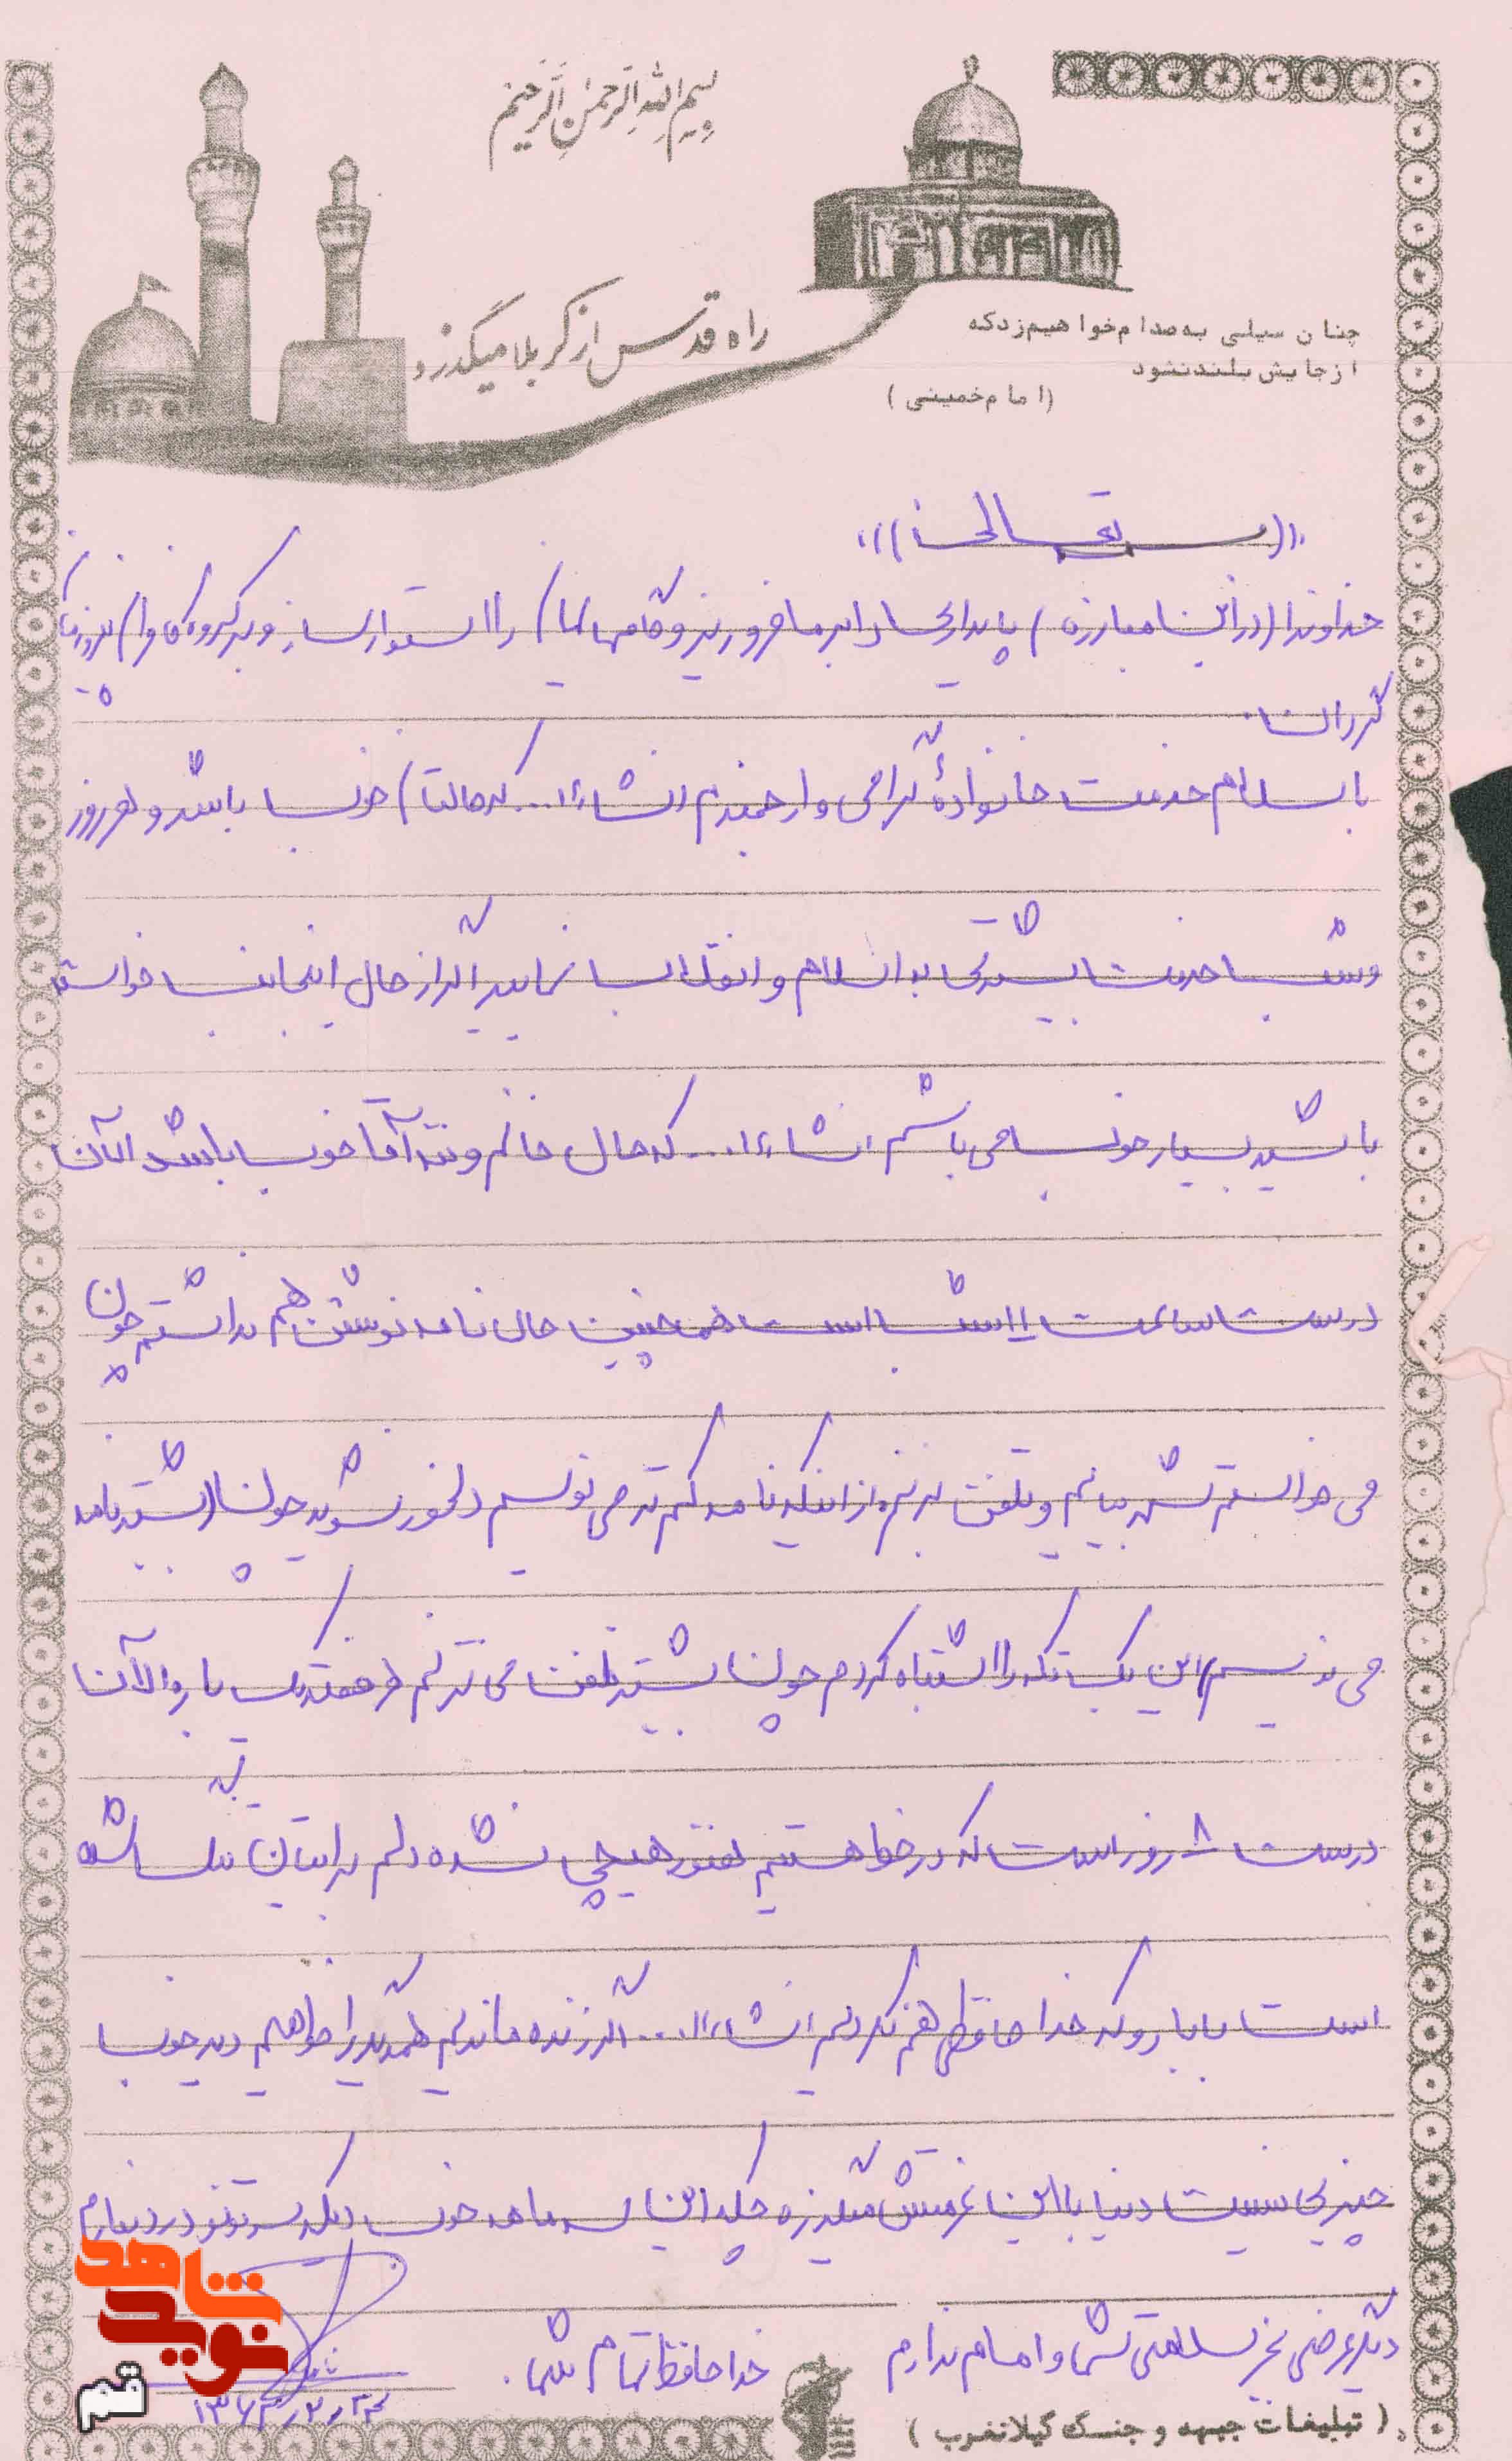 بسم الله الرحمن الرحیم
راه قدس از کربلا میگذرد
چنان سیلی به صدام خواهیم زد که
از جایش بلند نشود
(امام خمینی)
خداوندا (در این مبارزه) پایداری را بر ما فرو ریز و گامهای ما را استوار ساز و بر گروه کافران پیروزمان
گردان.
با سلام خدمت خانوادهٔ گرامی و ارجمندم انشاءا... که حالتان خوب باشد و هر روز
و شب خدمت بیشتری به اسلام و انقلاب نمایید اگر از حال اینجانب خواسته
باشید بسیار خوب می باشم انشاءا... که حال خانم و ننه آقا خوب باشد الان
درست ساعت ۱۱ شب است همچنین حال نامه نوشتن هم نداشتم چون
می خواستم شهر بیایم و تلفن بزنم از اینکه نامه کم تر می نویسم دلخور نشوید چون بیشتر نامه
می نویسم این یک تکه را اشتباه کردم چون بیشتر تلفن می کنم هر هفته یک بار والان
درست ۸ روز است که در خط هستیم هنوز هیچی نشده دلم برایتان تنگ شده
است بابا رو که خدا حافظی هم نکردیم انشاءا... اگر زنده ماندیم همدیگر را خواهیم دید خوب
چیزی نیست دنیا با این عزمتش میگذره چکه این سه ماهه خوب دیگه سرتونو درد نیارم
دیگر عرضی بجز سلامتی شما و امام ندارم
خدا حافظ تمام شما.
۱۳۶۳٫۲٫۲۳
(تبلیغات جبهه و جنگ گیلانغرب)
شاهد
نوید
قم